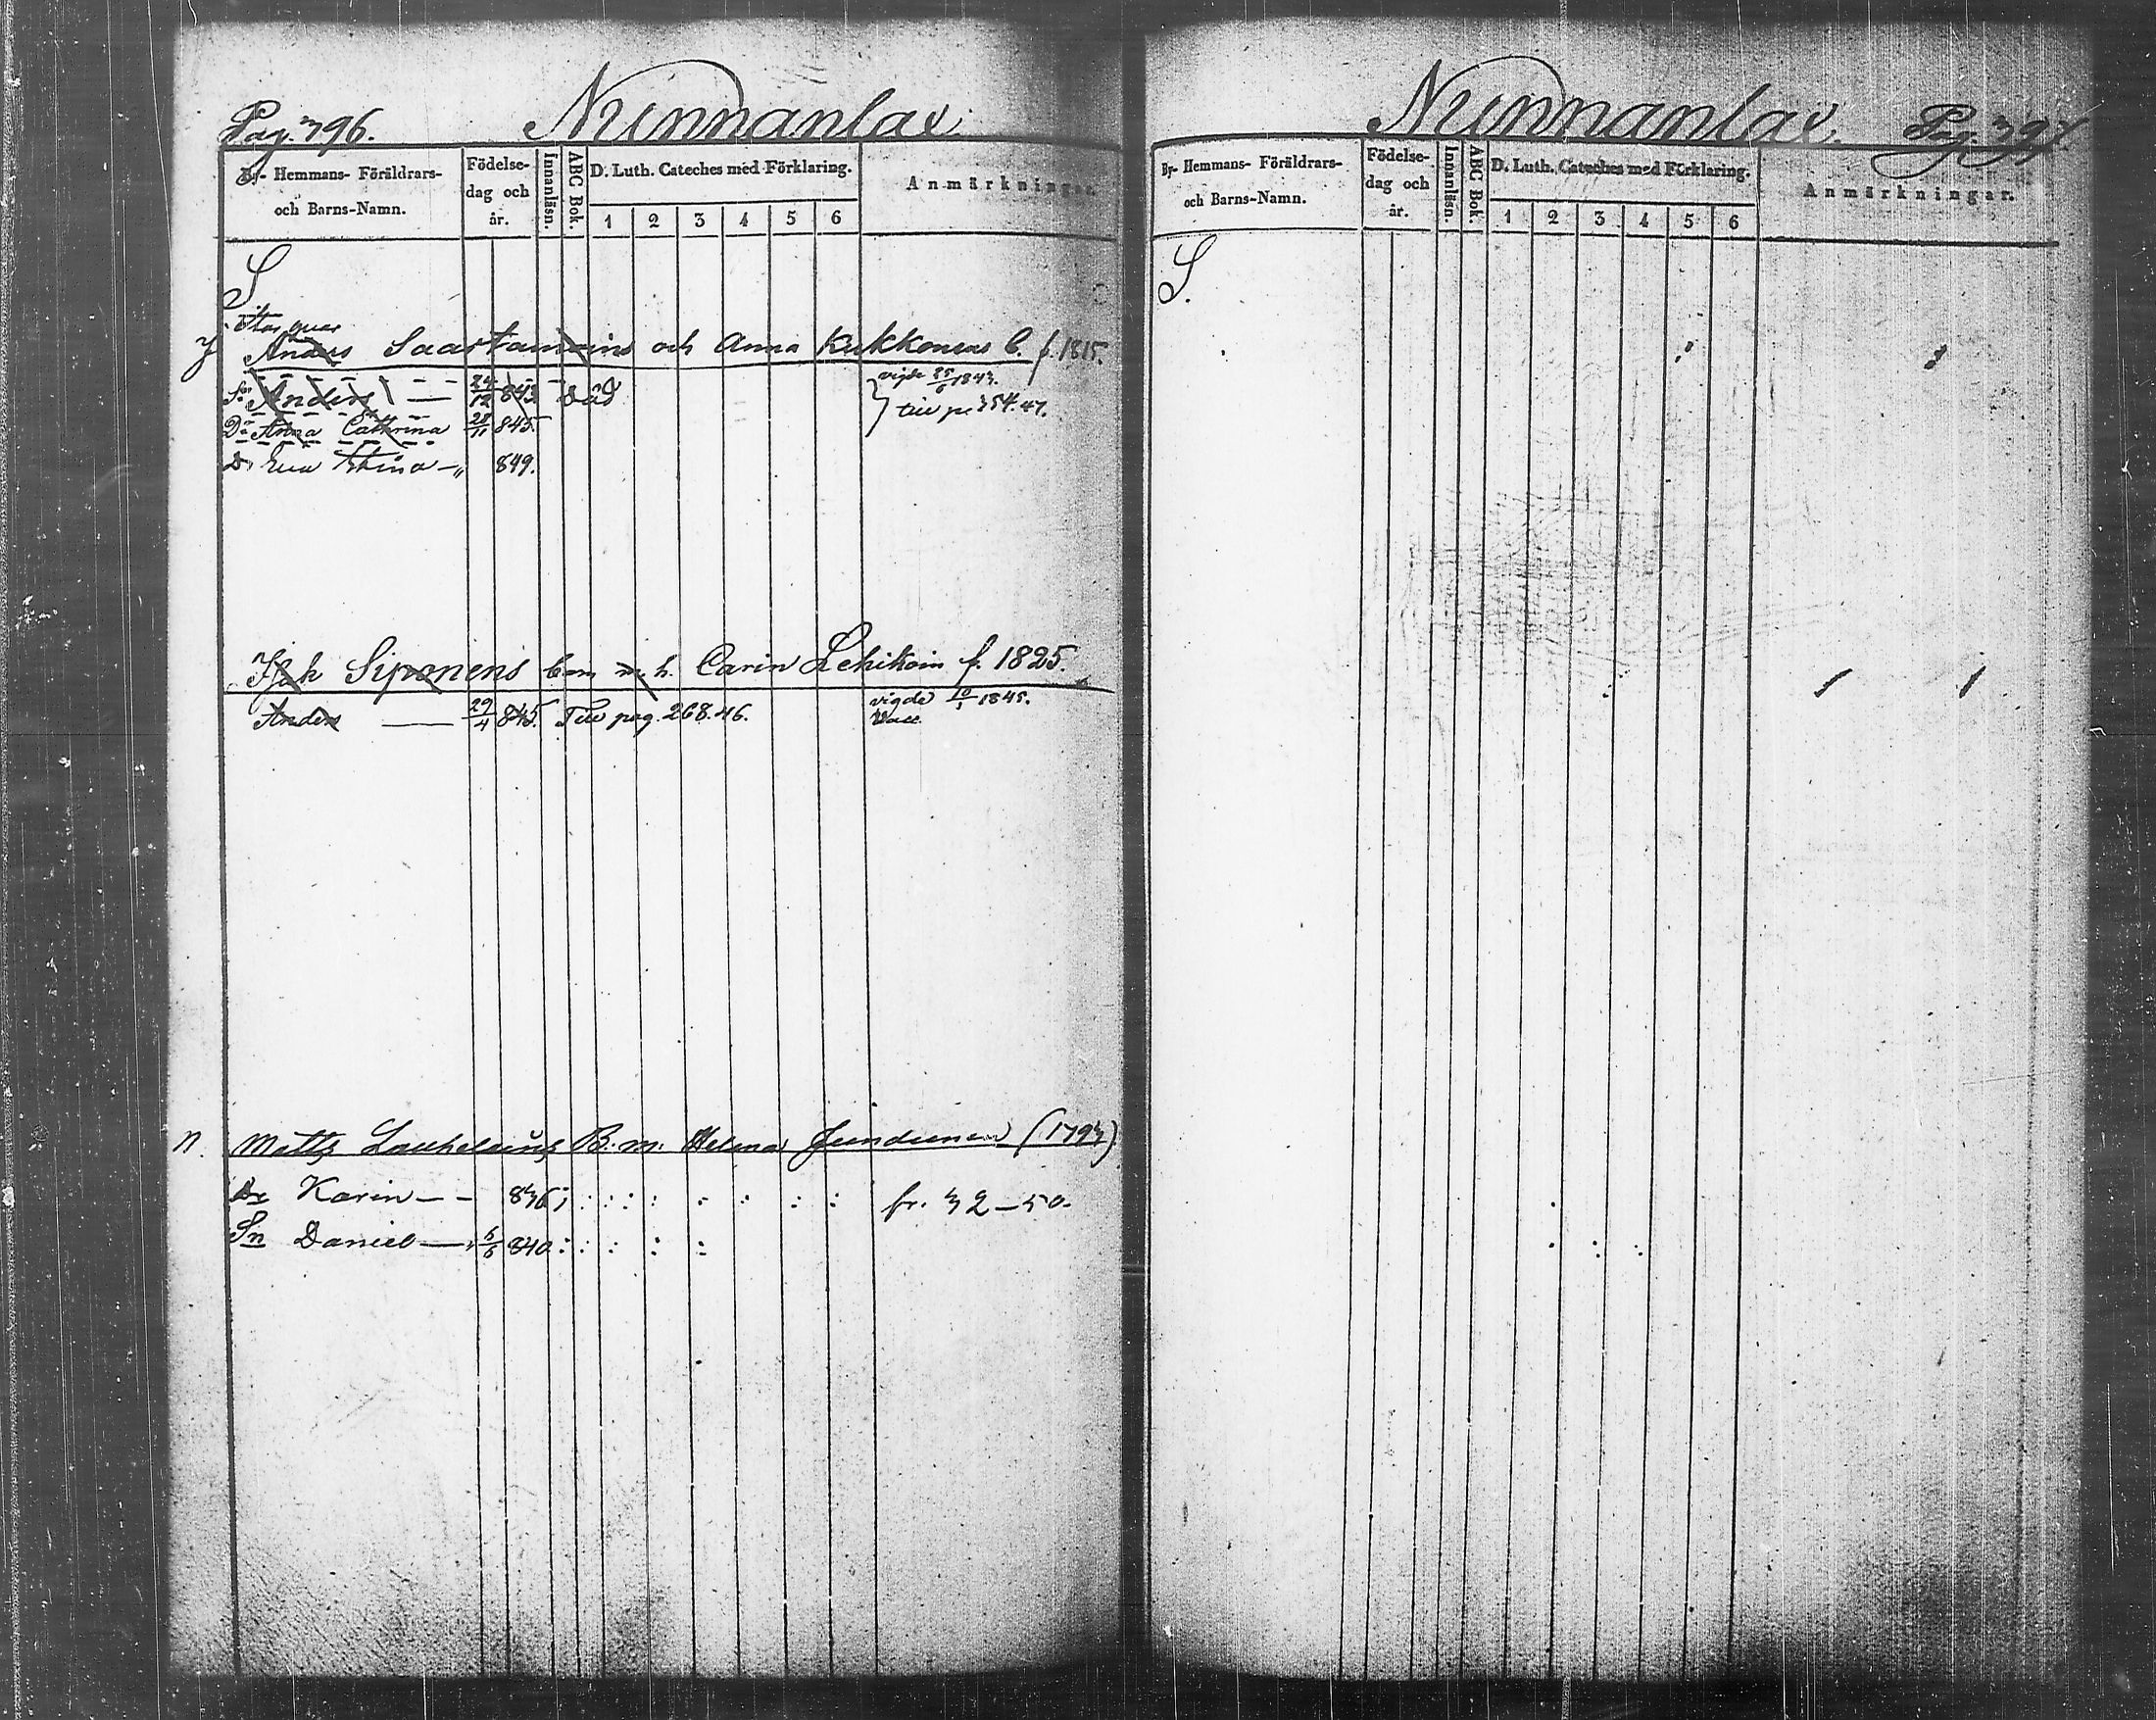 Pag. 396.
Nunnanlax
By- Hemmans- Föräldrars-
och Barns-Namn.
Födelse-
dag och
år.
Innanläsn.
ABC Bok.
D. Luth. Cateches med Förklaring.
1 2 3 4 5 6
Anmärkningar.
S
Anders Saastamoins och Anna Kukkonens b. f. 1815.
Sn Anders — 24/12 843 död
vigde 25/6 1843.
Dr Anna Cathrina 28/11 845.
till p. 354. 47.
Dr Eva Stina — 849.
Isak Siponens barn m. h. Carin Lehikoin f. 1825.
Anders — 29/4 845. Till pag. 268. 46.
vigde 10/1 1845.
n. Matts Laukelains B. m. Helena (1793)
Dr Karin — — 836;
fr. 32—50.
Sn Daniel — 5/6 840
Nunnanlax. Pag. 397.
By- Hemmans- Föräldrars-
och Barns-Namn.
Födelse-
dag och
år.
Innanläsn.
ABC Bok.
D. Luth. Cateches med Förklaring.
1 2 3 4 5 6
Anmärkningar.
S.